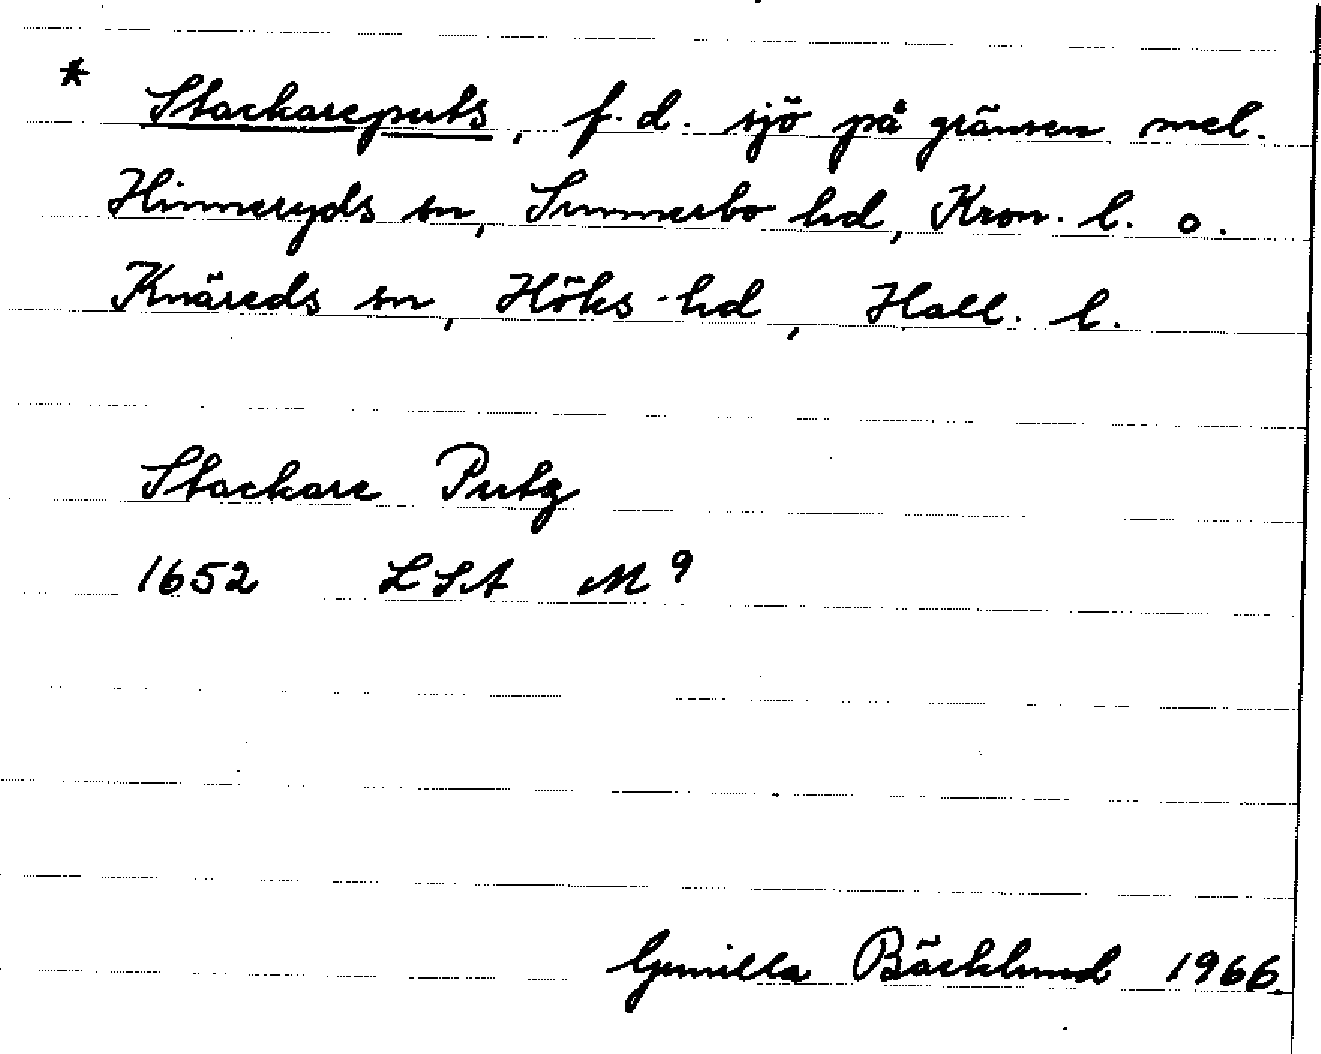 * Stackareputs, f.d. sjö på gränsen mel.
Hinneryds sn, Sunnerbo hd, Kron. l. o.
Knäreds sn, Höks hd, Hall. l.
Stackare Putz
1652 LSA M9
Gunilla Bäcklund 1966.